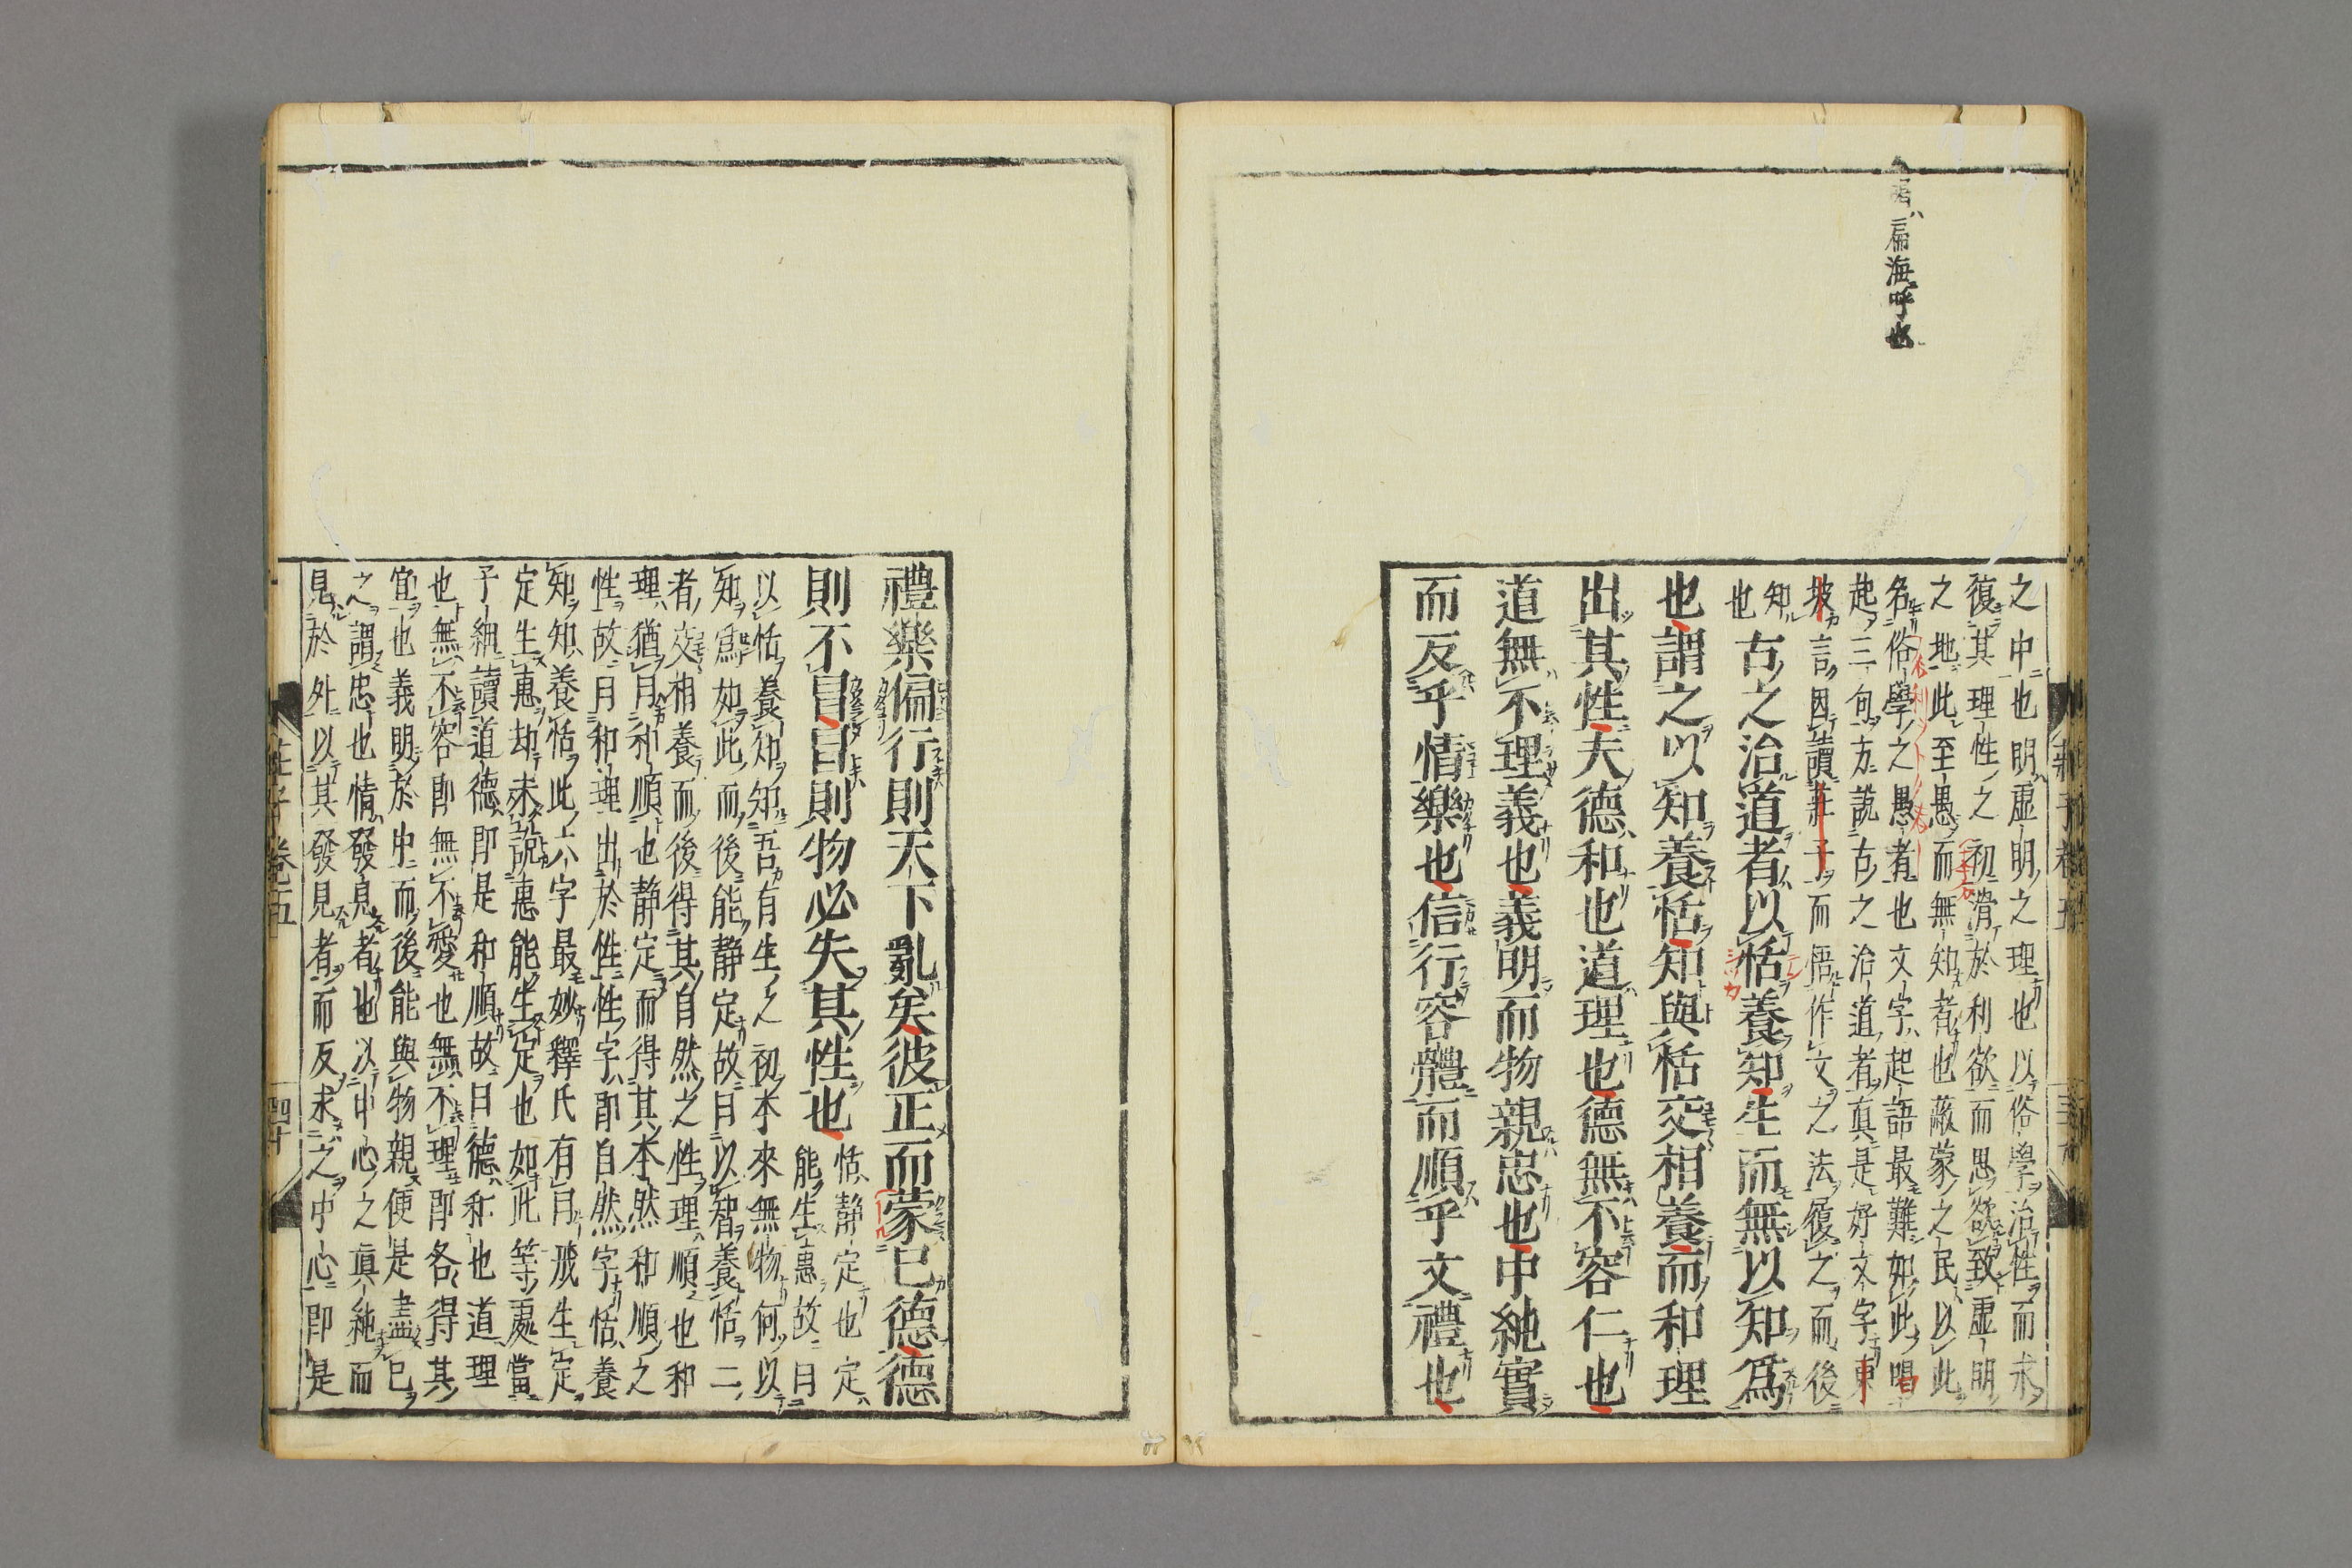 之中也明虛明之理也以俗學治性而求
復其理性之初滑於利欲而思欲致虛明
之地此至愚而無知者也蔽蒙之民以此
名俗學之愚者也文字起語最難如此
起三句方說古之治道者真是好文字東
坡言因讀莊子而悟作文之法履之而後
知也
古之治道者以恬養知生而無以知爲
也謂之以知養恬知與恬交相養而和理
出其性夫德和也道理也德無不容仁也
道無不理義也義明而物親忠也中純實
而反乎情樂也信行容體而順乎文禮也
海呼也
莊子卷五
禮樂偏行則天下亂矣彼正而蒙己德德
則不冒冒則物必失其性也
恬靜定也定
能生惠故曰
以恬養知知吾有生之初本來無物何以
知爲如此而後能靜定故曰以智養恬二
者交相養而後得其自然之性理順也和
理猶曰和順也靜定而得其本然和順之
性故曰和理出於性性字即自然字恬養
知知養恬此六字最妙釋氏有曰戒生定
定生惠却未說惠能生定也如此等處當
子細讀道德即是和順故曰德和也道理
也無不容即無不愛也無不理即各得其
宜也義明於中而後能與物親便是盡己
之謂忠也情發見者也以中心之真純而
見於外以其發見者而反求之中心即是
莊子卷五
四十